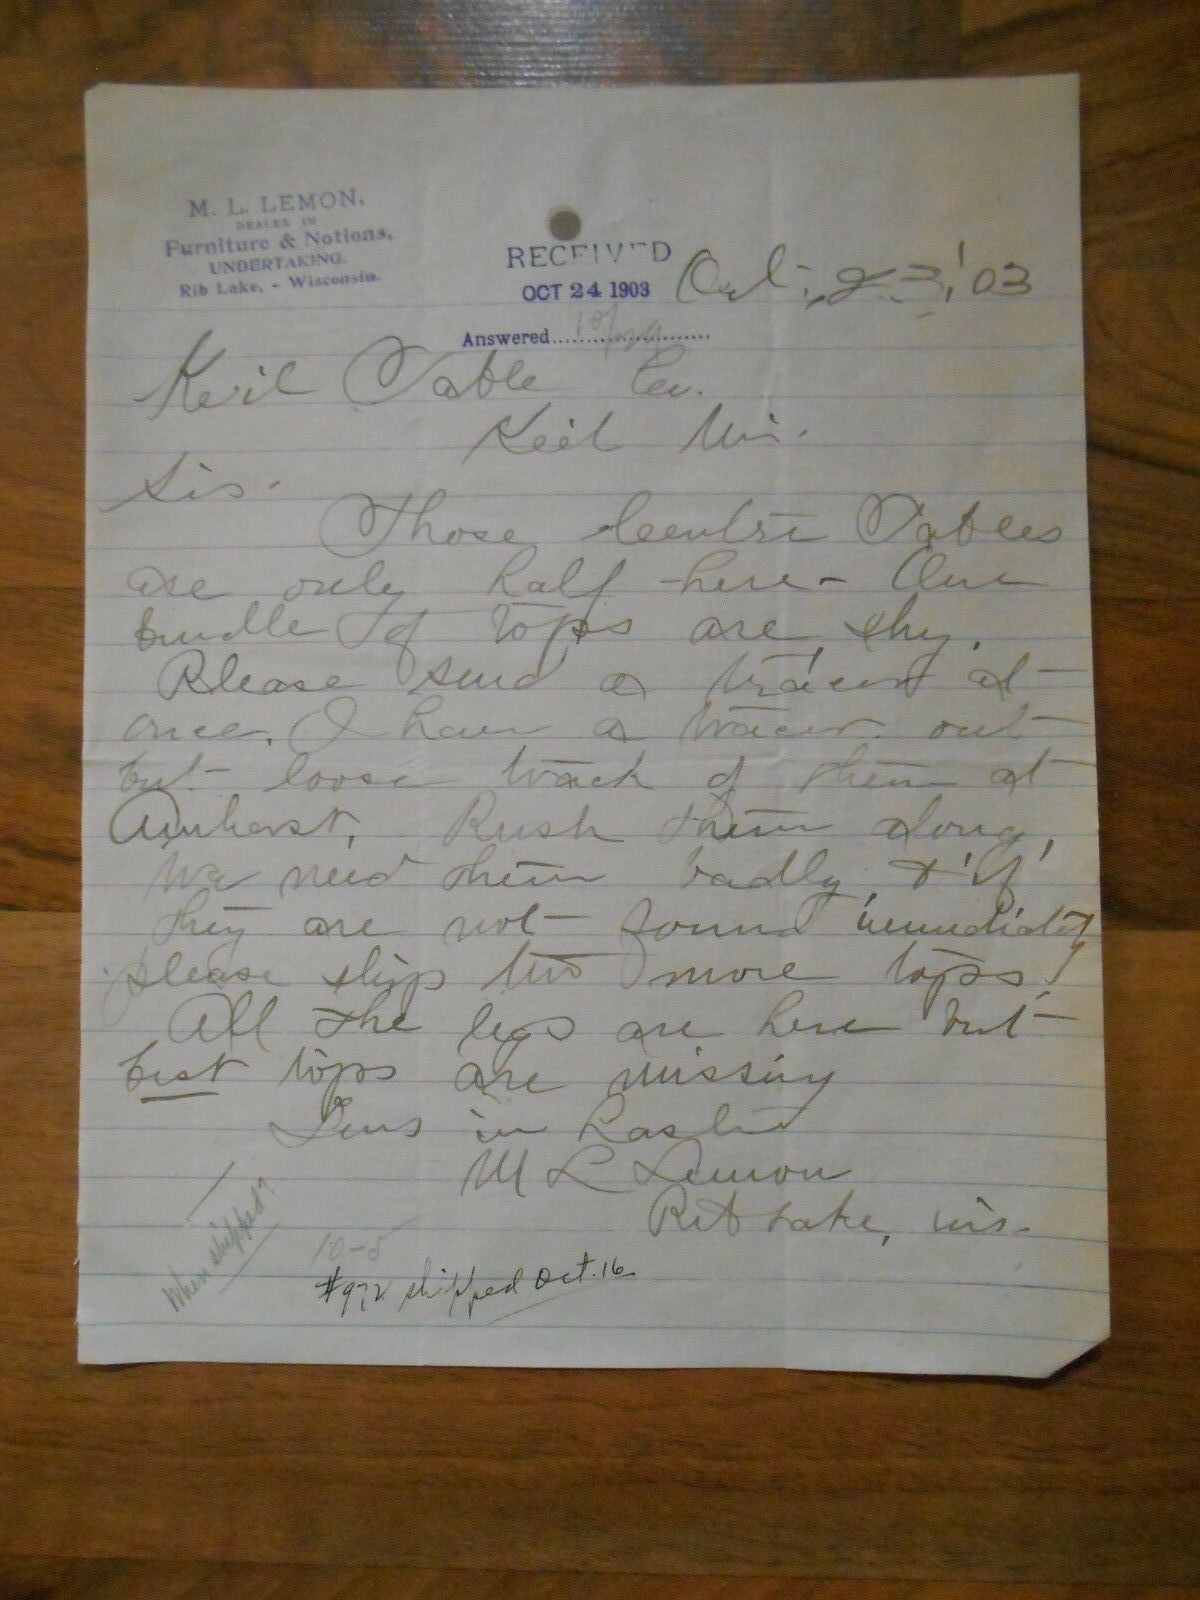 M. L. LEMON,
DEALER IN
Furniture & Notions,
UNDERTAKING.
Rib Lake, - Wisconsin.
RECEIVED
OCT 24 1903
Answered
Oct, 23, '03
Keil Table Co.
Keil Wis.
Sir.
Those Centre Tables
are only half here - One
bundle of tops are shy.
Please send a tracer at
once, I have a tracer out
but loose track of them at
Amherst, Rush them along,
We need them badly, & if
they are not found immediately
please ship two more tops!
All the legs are here but
best tops are missing
Yours in haste
M L Lemon
Rib Lake, Wis.
When shipped?
10-5
#972 shipped Oct. 16